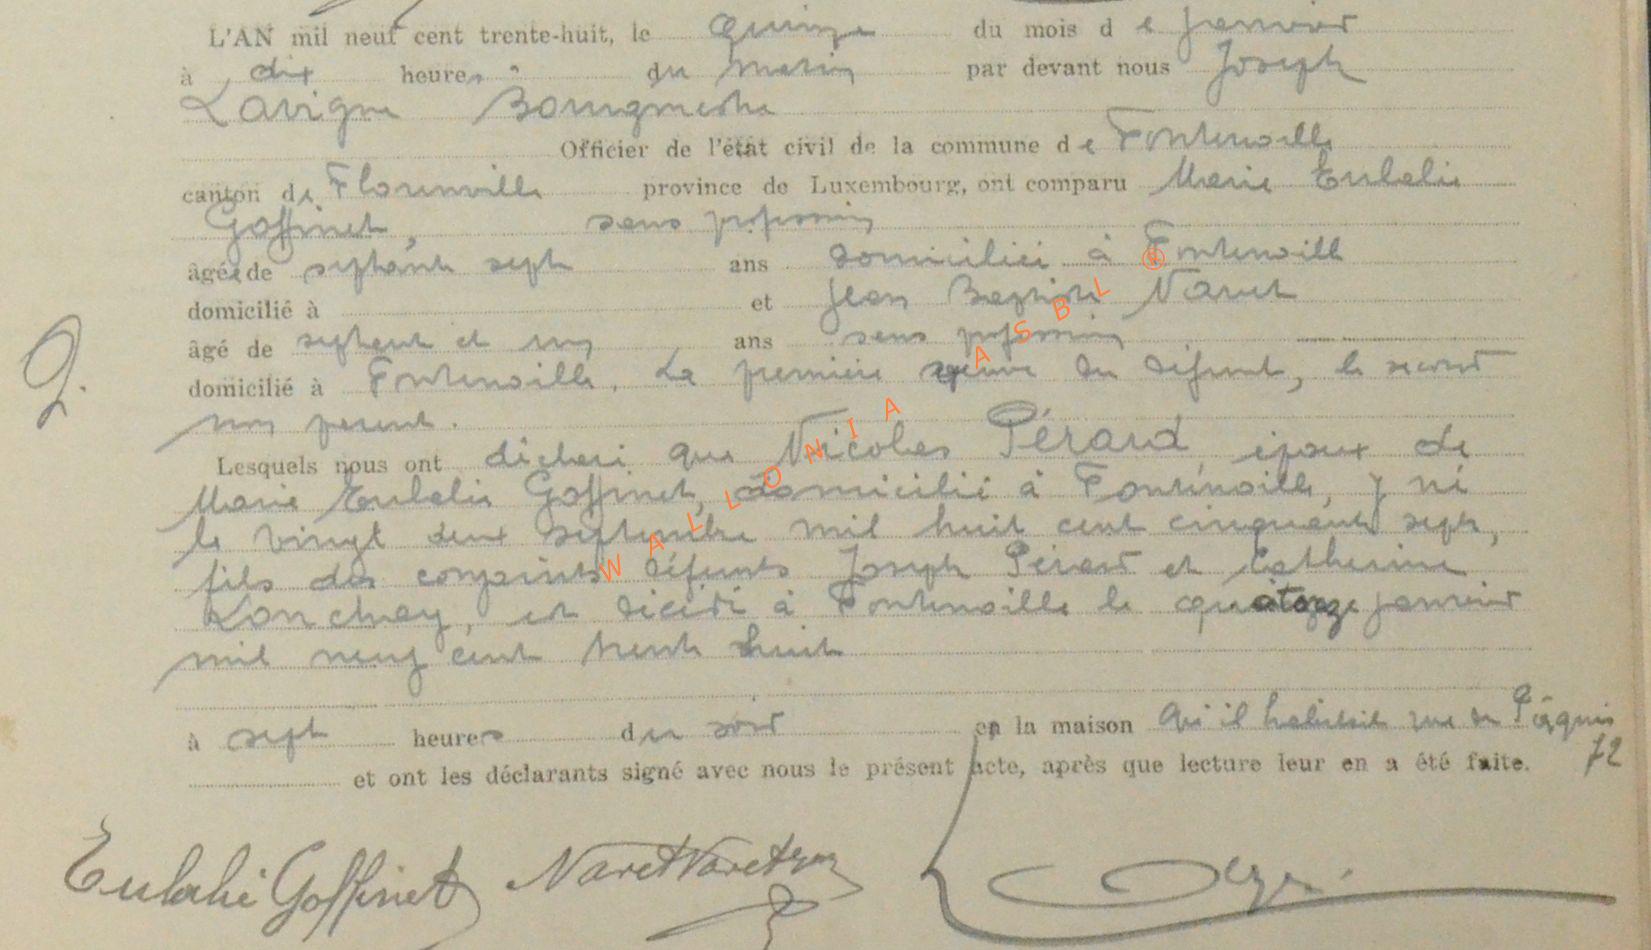 L'AN mil neuf cent trente-huit, le quinze du mois de janvier
à dix heures du matin par devant nous Joseph
Lavigne Bourgmestre
Officier de l'état civil de la commune de Fontenoille
canton de Florenville province de Luxembourg, ont comparu Marie Eulalie
Goffinet, sans profession
âgée de septante sept ans domiciliée à Fontenoille
domicilié à et Jean Baptiste Navet
âgé de septante et un ans sans profession
domicilié à Fontenoille. La première épouse du défunt, le second
9.
non parent.
Lesquels nous ont déclaré que Nicolas Pérard, époux de
Marie Eulalie Goffinet, domicilié à Fontenoille, y né
le vingt deux septembre mil huit cent cinquante sept,
fils des conjoints défunts Joseph Pérard et Catherine
Lonchay, est décédé à Fontenoille le quatorze janvier
mil neuf cent trente huit
à sept heures du soir en la maison qu'il habitait rue du Pâquis
72
et ont les déclarants signé avec nous le présent acte, après que lecture leur en a été faite.
Eulalie Goffinet Navet
WALLONIA ASBL ®